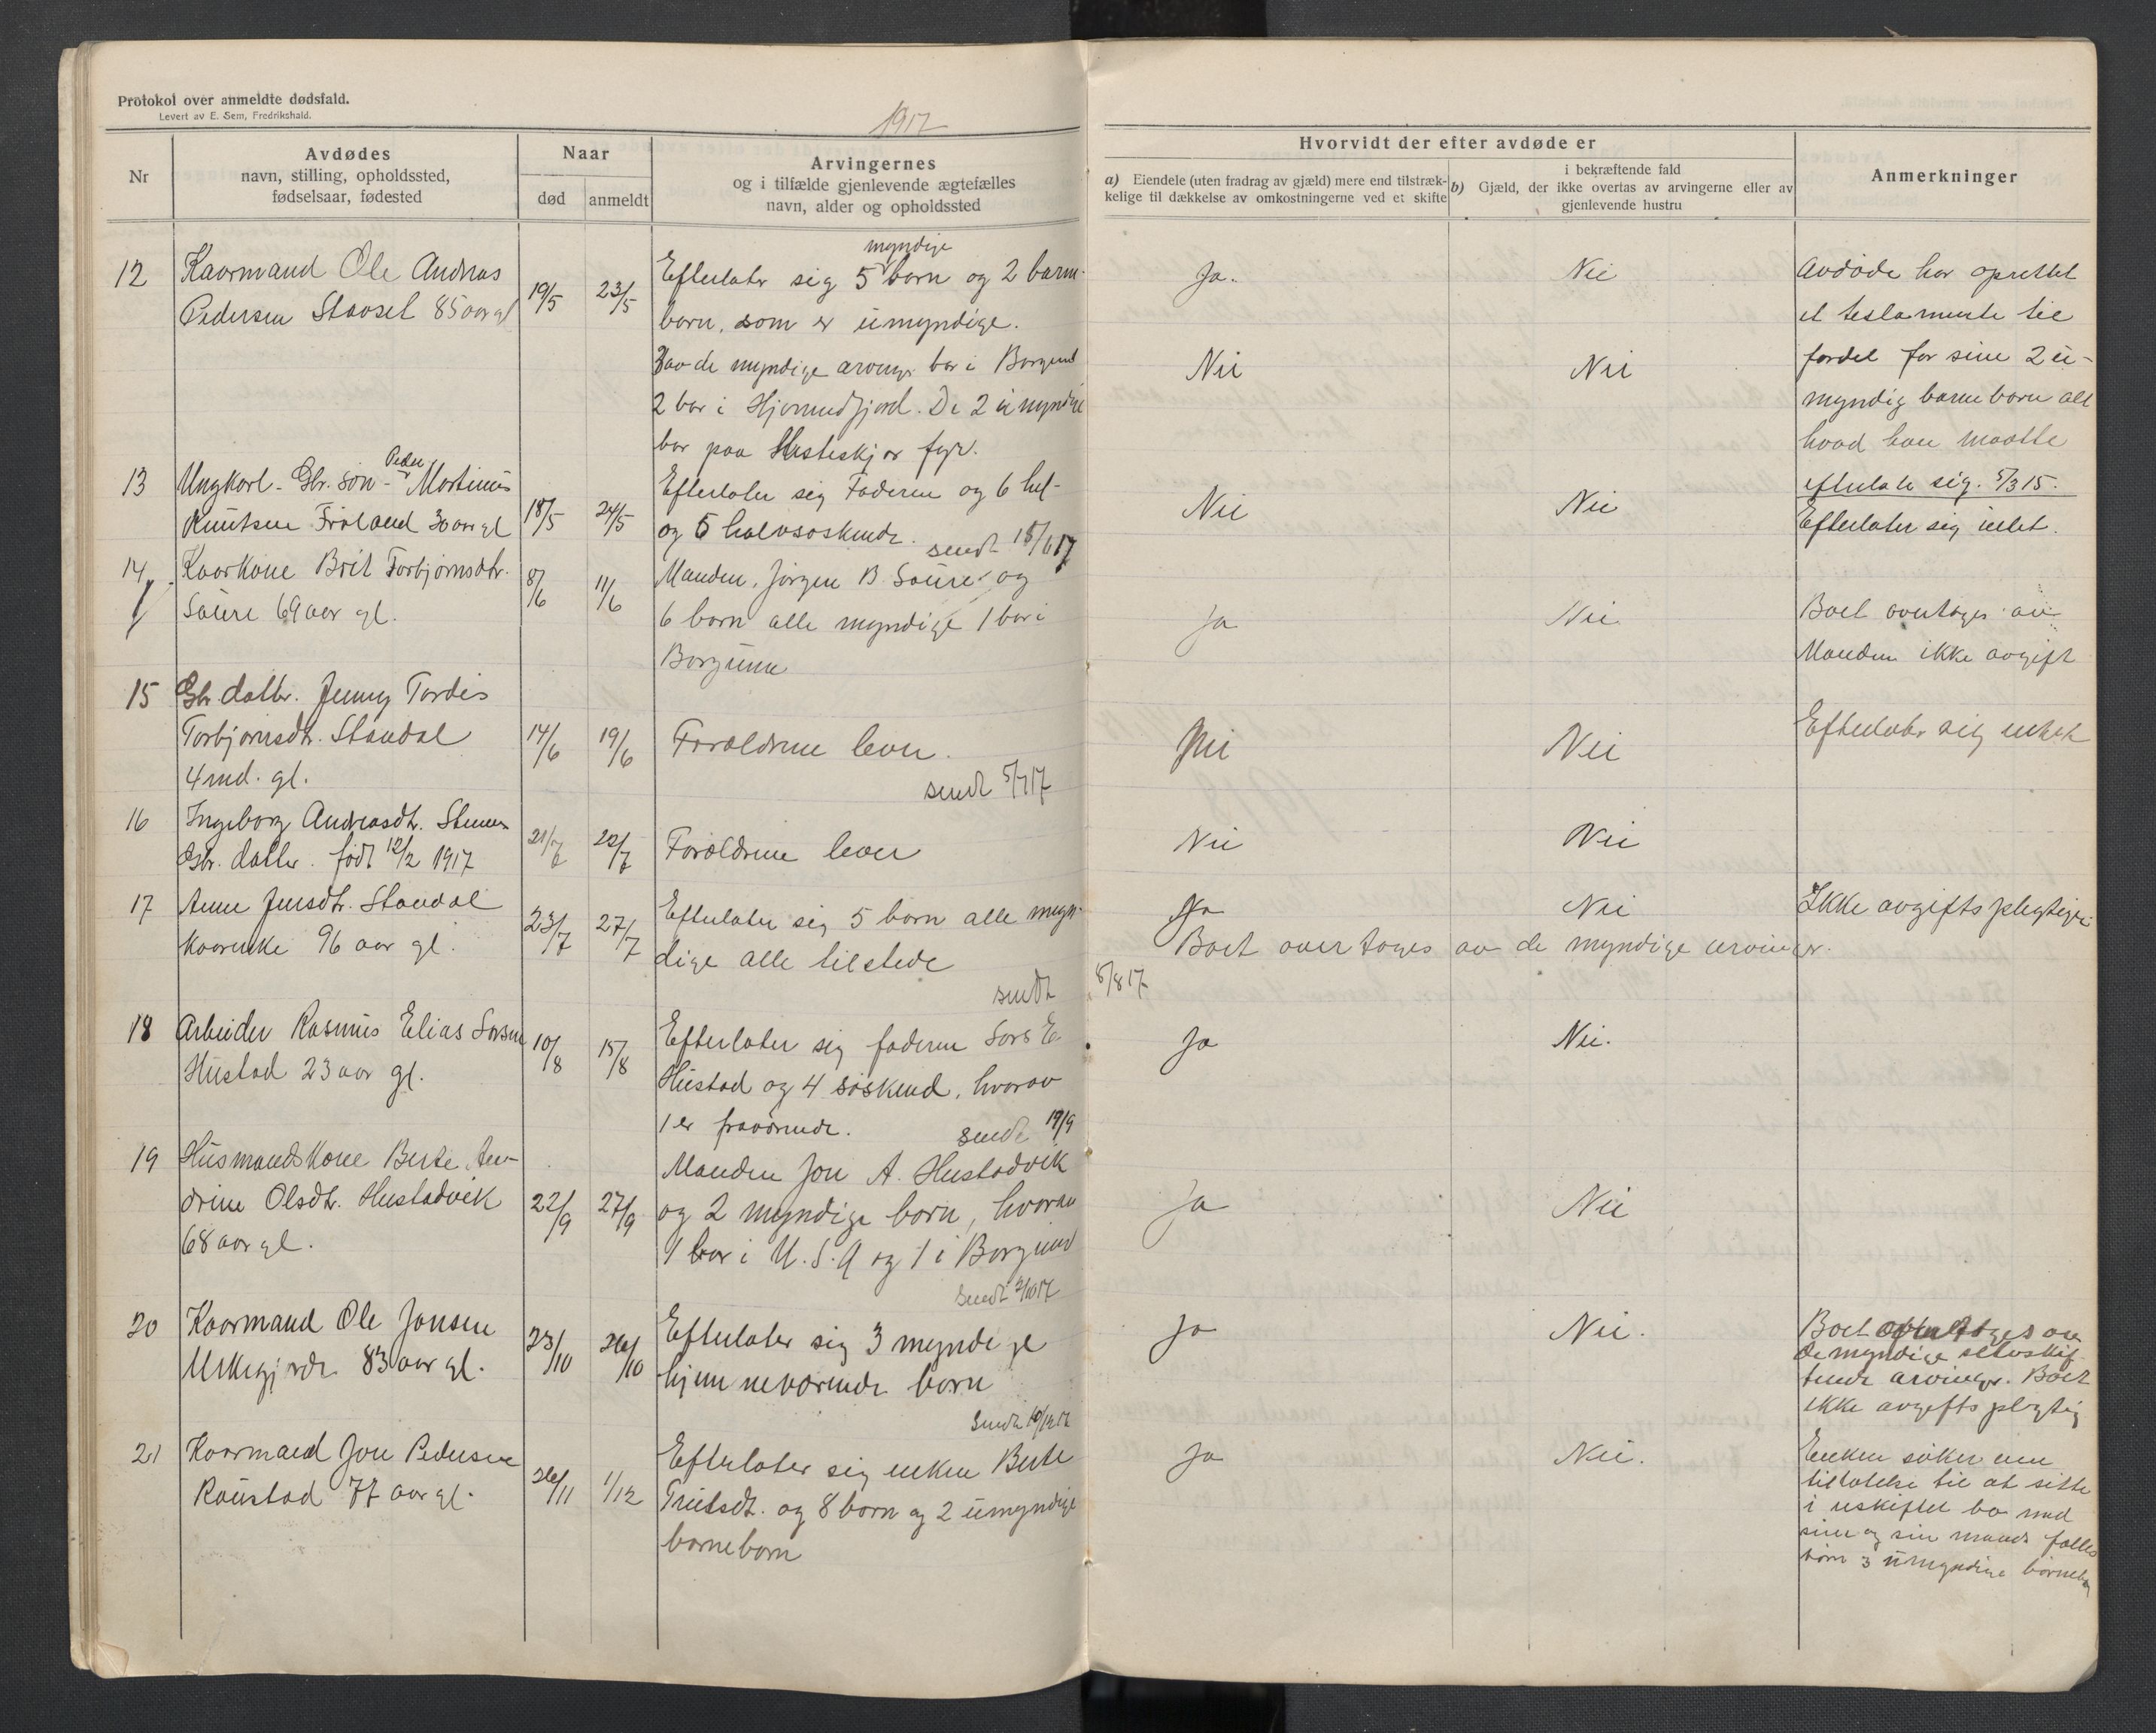 Protokol over anmeldte dødsfald.
Levert av E. Sem, Fredrikshald.
1917
Nr
Avdødes
navn, stilling, opholdssted,
fødselsaar, fødested
Naar
død
anmeldt
Arvingernes
og i tilfælde gjenlevende ægtefælles
navn, alder og opholdssted
Hvorvidt der efter avdøde er
a) Eiendele (uten fradrag av gjæld) mere end tilstræk-
kelige til dækkelse av omkostningerne ved et skifte
i bekræftende fald
b) Gjæld, der ikke overtas av arvingerne eller av
gjenlevende hustru
Anmerkninger
12
Kaarmand Ole Andreas
Pedersen Stavset 85 aar gl
19/5
23/5
myndige
Efterlater sig 5 børn og 2 barne-
børn, som er umyndige.
3 av de myndige arvinger bor i Borgund
2 bor i Hjørundfjord. De 2 umyndige
bor paa Hesteskjær fyr.
Ja.
Nei
Nei
Nei
Avdøde har oprettet
et testamente til
fordel for sine 2 u-
myndig barnebørn alt
hvad han maatte
efterlate sig. 5/3 15.
13
Peder
Ungkarl. Gbr. søn - Martinus
Knutsen Frøland 30 aar gl
18/5
24/5
Efterlater sig Faderen og 6 hel-
og 5 halvsøskende.
sendt 15/6 17
Nei
Nei
Efterlater sig intet.
14
Kaarkone Brit Torbjørnsdtr.
Saure 69 aar gl.
8/6
11/6
Manden, Jørgen B. Saure og
6 børn alle myndige 1 bor i
Borgund
Ja
Nei
Boet overtages av
Manden ikke avgift
15
Gbr datter. Jenny Tordis
Torbjørnsdtr. Standal
4 md. gl.
14/6
19/6
Forældrene lever.
sendt 5/7 17
Nei
Nei
Efterlater sig intet
16
Ingeborg Andreasdtr. Stennes
Gbr. datter. født 12/2 1917
21/7
22/7
Forældrene lever
Nei
Nei
17
Anne Jensdtr. Standal
Kaarenke 96 aar gl.
23/7
27/7
Efterlater sig 5 børn alle myn-
dige alle tilstede
sendt 8/8 17
Ja
Nei
Ikke avgiftspligtige
Boet overtages av de myndige arvinger.
18
Arbeider Rasmus Elias Larsen
Hustad 23 aar gl.
10/8
15/8
Efterlater sig faderen Lars E
Hustad og 4 søskend, hvorav
1 er fraværende.
sendt 19/9
Ja
Nei.
19
Husmandskone Berte An-
drine Olsdtr. Hustadvik
68 aar gl.
22/9
27/9
Manden Jon A. Hustadvik
og 2 myndige børn, hvorav
1 bor i U.S.A og 1 i Borgund
sendt 2/10 17
Ja
Nei
20
Kaarmand Ole Jonsen
Urkegjerde 83 aar gl.
23/10
26/10
Efterlater sig 3 myndige
hjemmeværende børn
Sendt 10/12 17
Ja
Nei.
Boet overtages av
de myndige selvskif-
tende arvinger. Boet
ikke avgiftspligtig
21
Kaarmand Jon Pedersen
Raustad 77 aar gl.
26/11
1/12
Efterlater sig enken Berte
Truitsdt. og 8 børn og 2 umyndige
barnebørn
Ja
Nei.
Enken søker om
tillatelse til at sitte
i uskiftet bo med
sine og sin mands fælles
børn 3 umyndige børnebørn